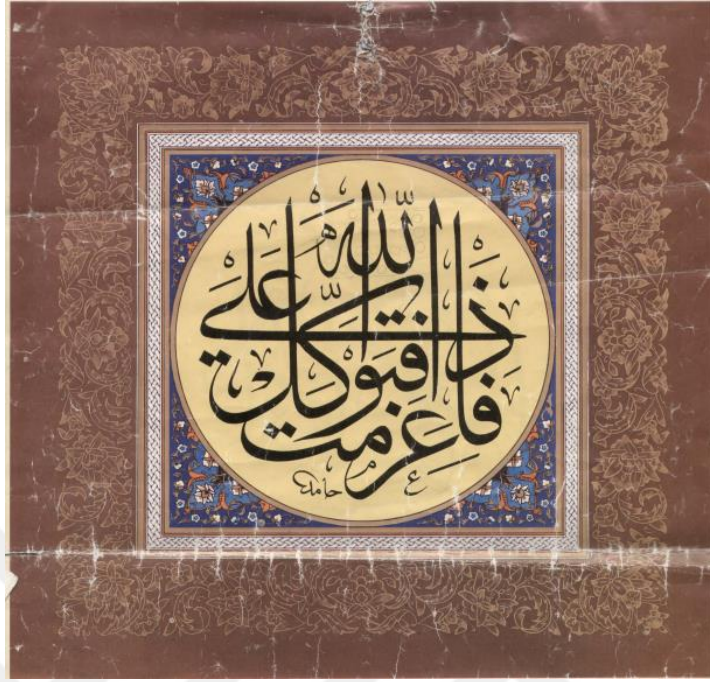 فإذا عزمت فتوكل على الله
حامد